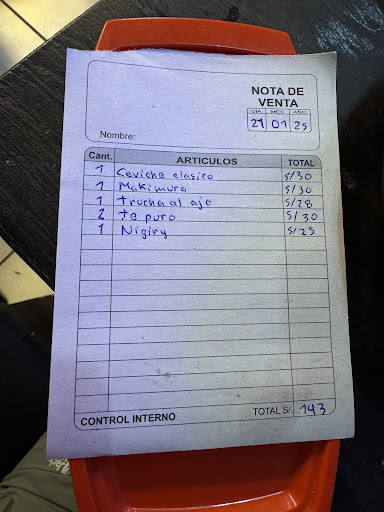 NOTA DE
VENTA
DIA MES AÑO
21 01 25
Nombre:
Cant. ARTICULOS TOTAL
1 Ceviche clasico S/30
1 Makimura S/30
1 trucha al ajo S/28
2 te puro S/30
1 Nigiry S/25
CONTROL INTERNO TOTAL S/. 143